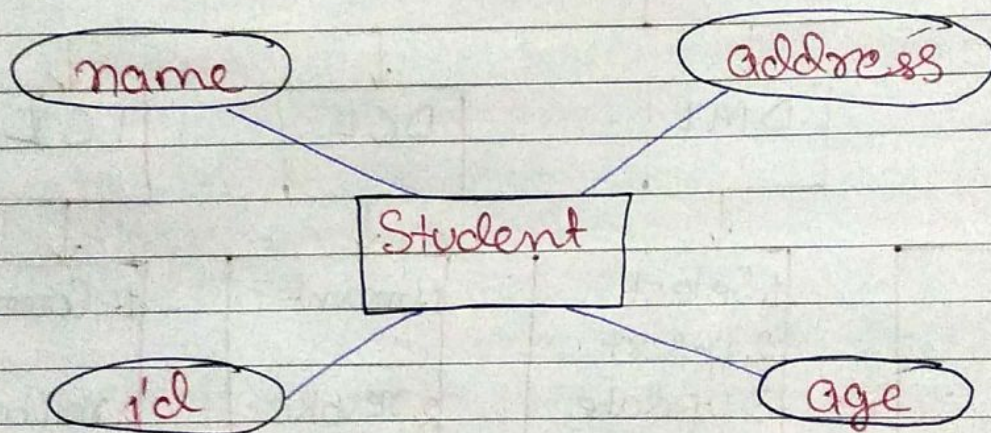 name
address
Student
id
age